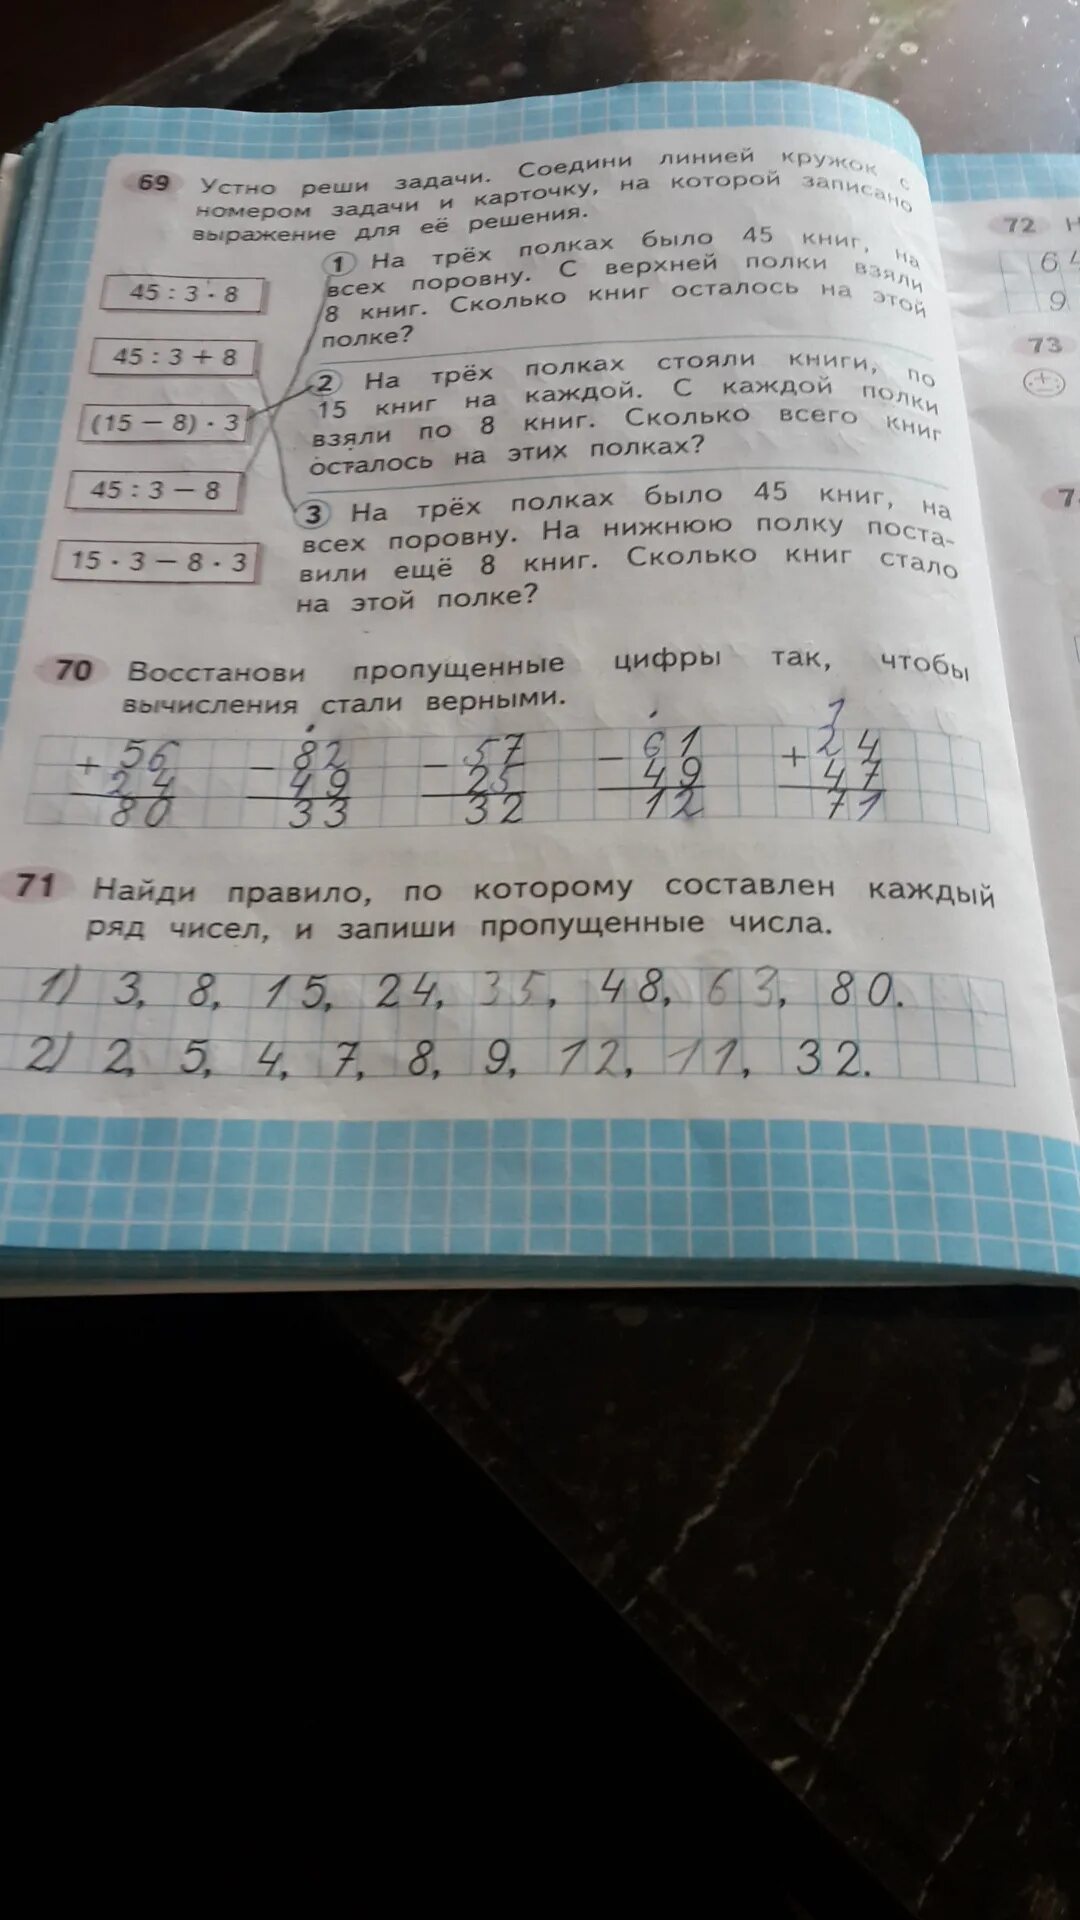 69 Устно реши задачи. Соедини линией кружок с
номером задачи и карточку, на которой записано
выражение для её решения.
45 : 3 · 8
45 : 3 + 8
(15 – 8) · 3
45 : 3 – 8
15 · 3 – 8 · 3
1 На трёх полках было 45 книг, на
всех поровну. С верхней полки взяли
8 книг. Сколько книг осталось на этой
полке?
2 На трёх полках стояли книги, по
15 книг на каждой. С каждой полки
взяли по 8 книг. Сколько всего книг
осталось на этих полках?
3 На трёх полках было 45 книг, на
всех поровну. На нижнюю полку поста-
вили ещё 8 книг. Сколько книг стало
на этой полке?
70 Восстанови пропущенные цифры так, чтобы
вычисления стали верными.
1
+ 56 – 82 – 57 – 61 + 24
24 49 25 49 47
80 33 32 12 71
71 Найди правило, по которому составлен каждый
ряд чисел, и запиши пропущенные числа.
1) 3, 8, 15, 24, 35, 48, 63, 80.
2) 2, 5, 4, 7, 8, 9, 12, 11, 32.
72 Н
64
9
73